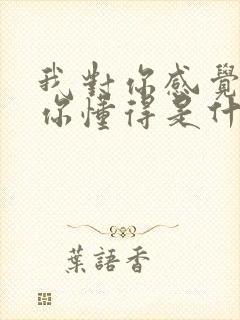 我對你感覺
你懂得是什
葉語香